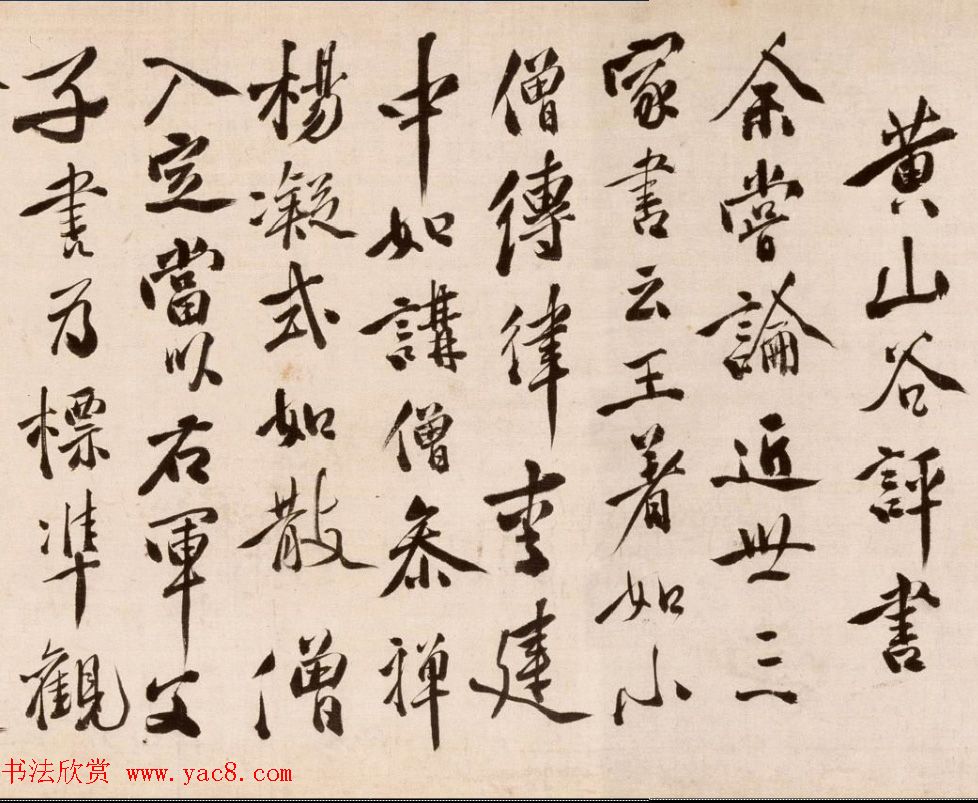 黄山谷評書
余嘗論近世三
家書云王著如小
僧縛律李建
中如講僧參禅
楊凝式如散僧
入定當以右軍父
子書为標準觀
书法欣赏 www.yac8.com